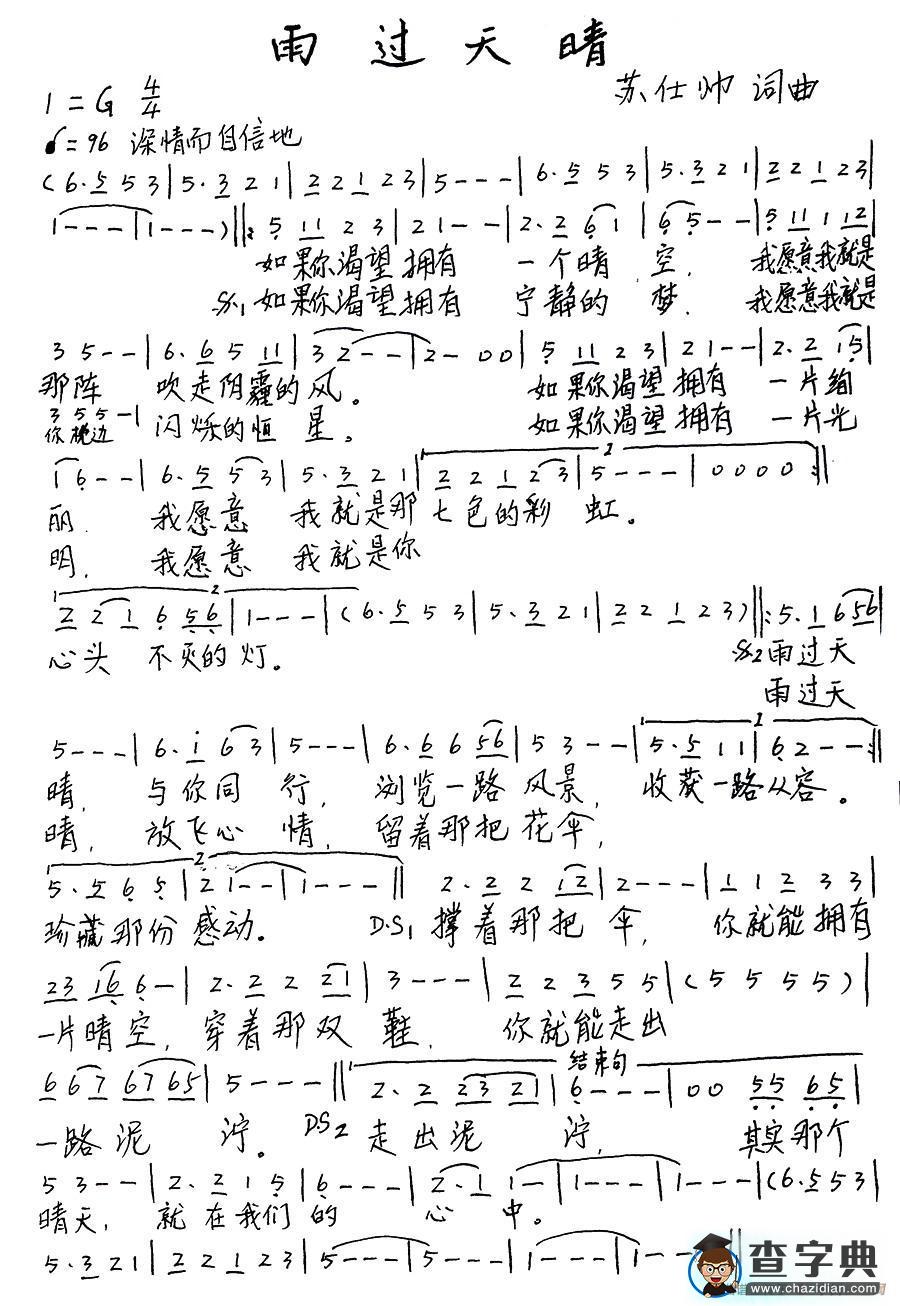 雨过天晴
1=G 4/4
苏仕帅 词曲
♩=96 深情而自信地
(6·5 5 3|5·3 2 1|2 2 1 2 3|5---|6·5 5 3|5·3 2 1|2 2 1 2 3|
1---|1---)‖: 5 11 2 3|2 1--|2·2 6 1|6 5--|5 11 1 12|
如果你渴望拥有 一个晴 空, 我愿意我就是
𝄋1 如果你渴望拥有 宁静的 梦. 我愿意我就是
3 5--|6·6 5 11|3 2--|2-00|5 11 2 3|2 1--|2·2 1 5|
那阵 吹走阴霾的风。 如果你渴望拥有 一片绚
3 5 5-|
你枕边 闪烁的恒 星。 如果你渴望拥有 一片光
1 6--|6·5 5 3|5·3 2 1|2 2 1 2 3|5---|0000:‖
丽. 我愿意 我就是那七色的彩 虹。
明, 我愿意 我就是你
2 2 1 6 56|1---|(6·5 5 3|5·3 2 1|2 2 1 2 3)‖:5·1 6 56|
心头 不灭的灯。 𝄋2 雨过天
雨过天
5---|6·1 6 3|5---|6·6 6 56|5 3--|5·5 1 1|6 2--:‖
晴, 与你同 行, 浏览一路 风景, 收获一路从容。
晴, 放飞心 情, 留着那把 花伞,
5·5 6 5|2 1--|1---‖ 2·2 2 12|2---|1 1 2 3 3|
珍藏那份感动。 D.S1 撑着那把 伞, 你就能拥有
23 16 6-|2·2 2 21|3---|2 2 3 5 5|(5 5 5 5)|
一片晴空, 穿着那双 鞋, 你就能走出
结束句
6 6 7 67 65|5---‖2·2 23 21|6---|00 55 65|
一路泥 泞。 D.S2 走出泥 泞, 其实那个
5 3--|2·2 1 5|6---|2·1 1-|1---|1---|(6·5 5 3|
晴天, 就在我们的 心 中。
5·3 2 1|2 2 1 2 3|5---|5---|1---|1---‖
查字典
www.chazidian.com